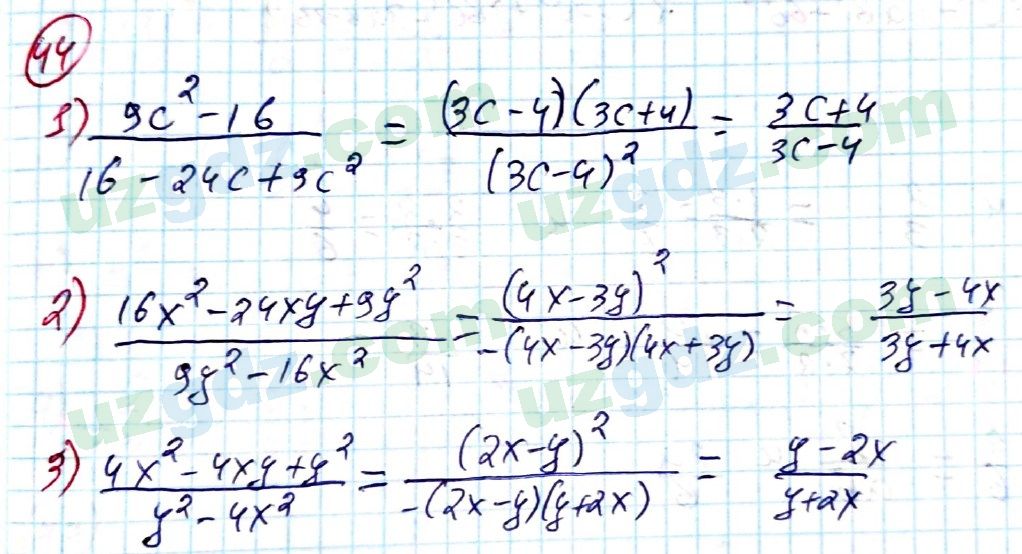 44
1) (9c² - 16)/(16 - 24c + 9c²) = ((3c - 4)(3c + 4))/((3c - 4)²) = (3c + 4)/(3c - 4)
2) (16x² - 24xy + 9y²)/(9y² - 16x²) = ((4x - 3y)²)/(-(4x - 3y)(4x + 3y)) = (3y - 4x)/(3y + 4x)
3) (4x² - 4xy + y²)/(y² - 4x²) = ((2x - y)²)/(-(2x - y)(y + 2x)) = (y - 2x)/(y + 2x)
uzgdz.com
uzgdz.com
uzgdz.com
uzgdz.com